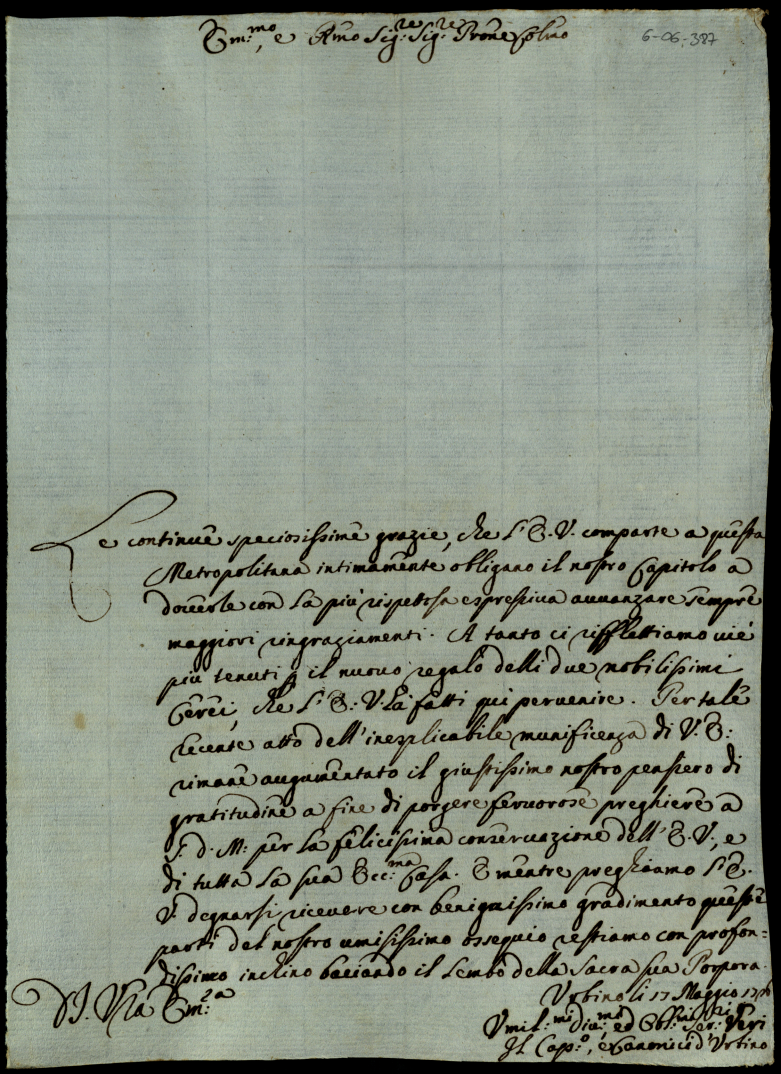 Em:mo, e Rmo Sig:re Sig:re Prone Colmo
6-06-387
Le continue speciosissime grazie, che l'E.V. comparte a questa
Metropolitana intimamente obligano il nostro Capitolo a
doverle con la più rispettosa espressiva avvanzare sempre
maggiori ringraziamenti. A tanto ci rifflettiamo vie
più tenuti p il nuovo regalo delli due nobilissimi
Cerei, che l'E:V. hà fatti qui pervenire. Per tale
recente atto dell'inesplicabile munificenza di V.E:
rimane augumentato il giustissimo nostro pensiero di
gratitudine a fine di porgere fervorose preghiere a
S. d. M: per la felicissima conservazione dell'E.V., e
di tutta la sua Ecc:ma Casa. E mentre preghiamo l'E.
V. degnarsi ricevere con benignissimo gradimento queste
parti del nostro umilissimo ossequio restiamo con profon=
dissimo inchino baciando il Lembo della Sacra sua Porpora.
Urbino li 17 Maggio
D. V. Ra Em:za
Umil:mi Div:mi ed Obb:mi Ser:
Il Cap:o, e Canonici d'Urbino